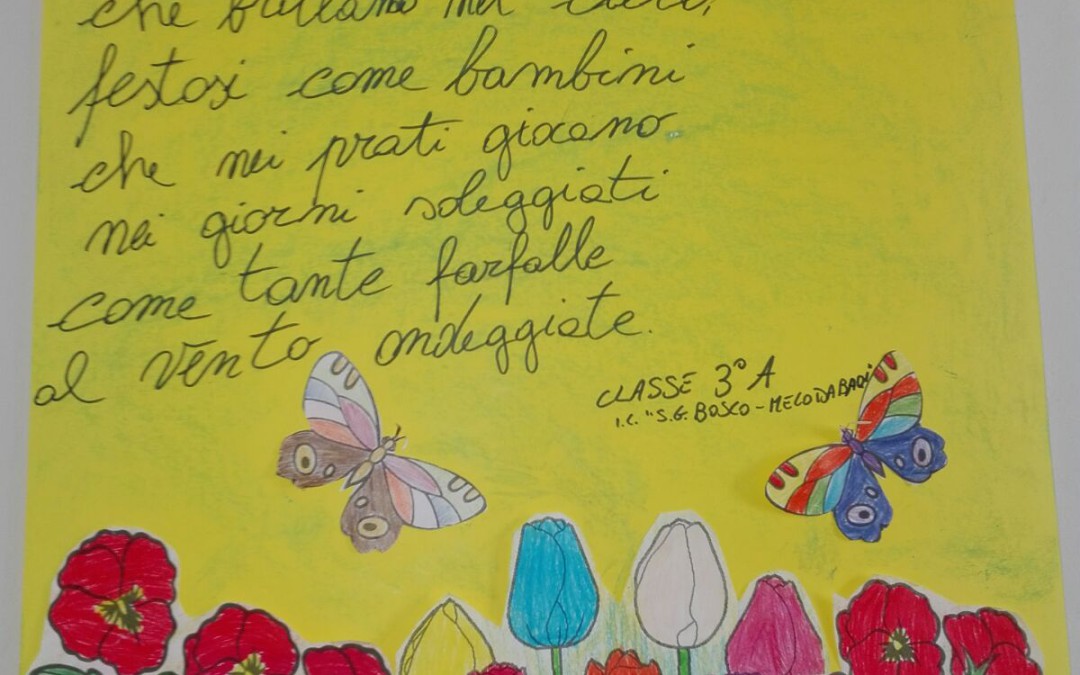 che
festosi come bambini
che nei prati giocano
nei giorni soleggiati
come tante farfalle
al vento ondeggiate.
CLASSE 3°A
I.C. "S.G. BOSCO - MELO DA BARI